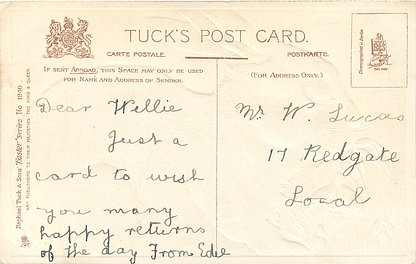 TUCK'S POST CARD.
CARTE POSTALE. POSTKARTE.
IF SENT ABROAD, THIS SPACE MAY ONLY BE USED
FOR NAME AND ADDRESS OF SENDER.
(FOR ADDRESS ONLY.)
Dear Willie
Just a
card to wish
you many
happy returns
of the day From Edie
Mr W. Lucas
17 Redgate
Local
Raphael Tuck & Sons "Easter" Series No 1249
ART PUBLISHERS TO THEIR MAJESTIES THE KING & QUEEN.